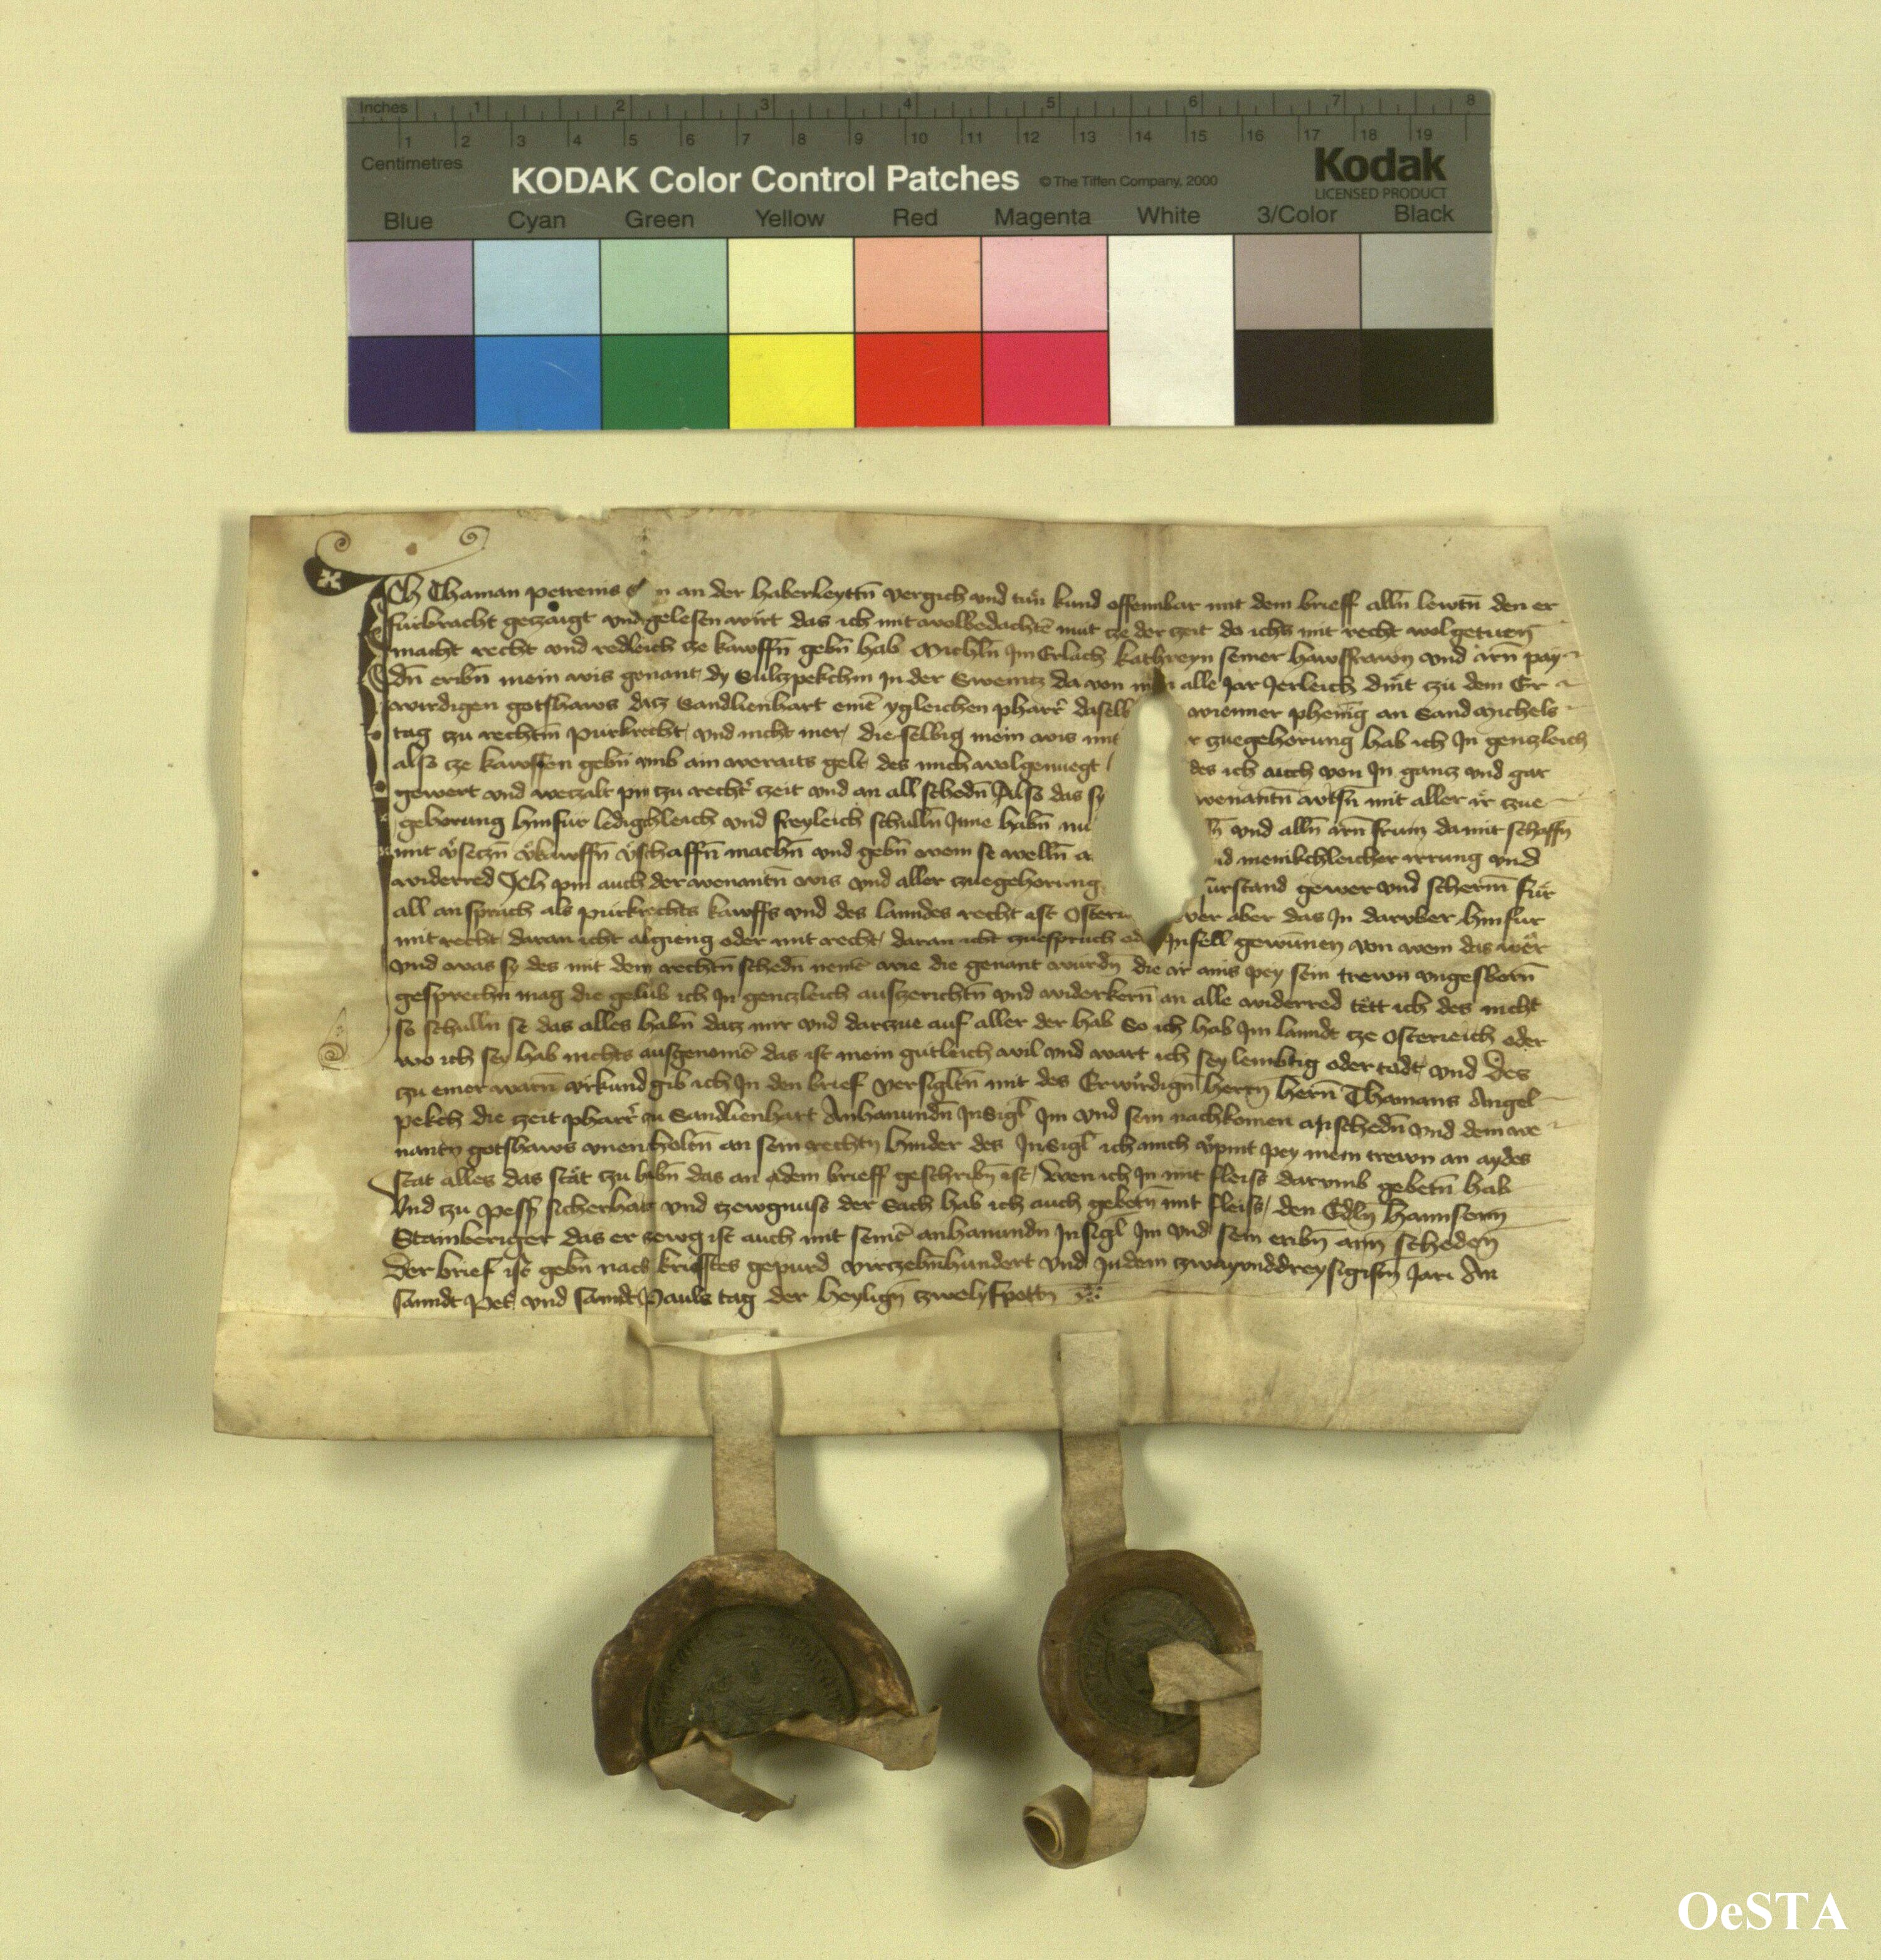 Inches 1 2 3 4 5 6 7 8
1 2 3 4 5 6 7 8 9 10 11 12 13 14 15 16 17 18 19
Centimetres
KODAK Color Control Patches © The Tiffen Company, 2000 Kodak
LICENSED PRODUCT
Blue Cyan Green Yellow Red Magenta White 3/Color Black
Ich Thaman petreins an der haberleyttn vergich und tun kund offennbar mit dem brieff alln lewtn den er
furbracht geczaigt und gelesen wirt das ich mit wolbedachtē mut cze der czeit do ichs mit recht wol getuen
macht recht und redleich cze kawffn gebn hab Michln Im Erlach kathreyn seiner hawsfrawn und irn pay
dn eribn mein wis genant dy Sulczpekchin In der Sweincz da von man alle Jar Jerleich dint czu dem Er
wirdigen gotshaws dacz Sandlienhart einē ygleichen pharr daselb wienner phenig an Sand Michels
tag czu rechtm purkrecht und nicht mer die selbig mein wis mit r czuegehorung hab ich In genczleich
also cze kawffen gebn umb ain beraits gelt des mich wolgenuegt des ich auch von In gancz und gar
gewert und beczalt pin czu rechtr czeit und an all schedn Also das sy benantn wisn mit aller ir czue
gehorung hinfur ledigchleich und freyleich schulln Inne habn nu und alln irn frum da mit schaffn
mit vseczn vkawffn vschaffn machn und gebn wem se welln a nd menikchleicher irrung und
widerred Ich pin auch der benantn wis und aller czuegehorung furstand gewer und scherm fur
all ansprach als purkrechts kawffs und des lanndes recht ist Osterr wer aber das In daruber hinfur
mit recht daran icht abgieng oder mit recht daran icht czuespruch od Infell gewunen von wem das wer
und was sy des mit dem rechtn schedn nemē wie die genant wurdn die ir ains pey sein trewn ungesworn
gesprechn mag die gelub ich In genczleich auszerichtn und widerkern an alle widerred tett ich des nicht
so schulln se das alles habn dacz mir und darczue auf aller der hab So ich hab Im lanndt cze Osterreich oder
wo ich sey hab nichts ausgenomē das ist mein gutleich wil und wart ich sey lembtig oder tadt und des
czu einer warn urkund gib ich In den brief versigltn mit des Erwirdign herrn hern Thamans Angel
pekch die czeit pharr czu Sandlienhart Anhanundn Insigl Im und sein nachkomen an schedn und dem be
nantn gotshaws unenholtn an sein rechtn hinder des Insigl ich mich vpint pey mein trewn an aydes
stat alles das stat czu habn das an dem brieff geschribn ist wen ich In mit fleiss darumb gebetn hab
Und czu pessr sicherhait und czewgnuss der Sach hab ich auch gebetn mit fleiss den Edln Hannsenn
Stainberiger das er czewg ist auch mit seinē anhanundn Insigl Im und sein eribn ann scheden
Der brief ist gebn nach kristes gepurd virczehnhundert und In dem czwayunddreysigistn Jari An
sanndt Petr und sanndt Pauls tag der heylign czwelifpottn
OeSTA